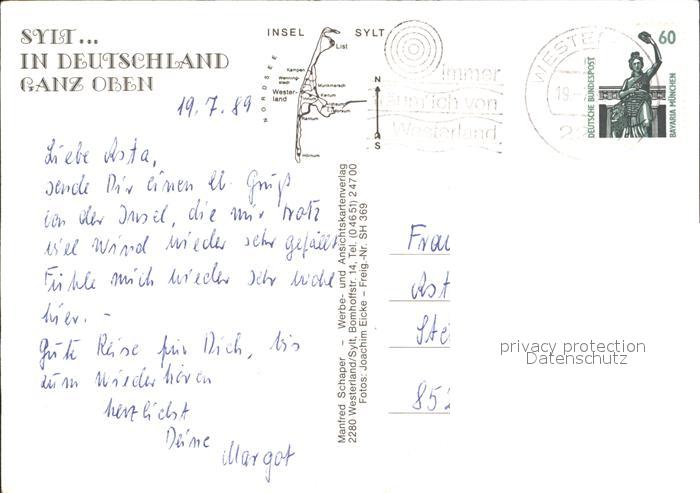 SYLT...
IN DEUTSCHLAND
GANZ OBEN
INSEL SYLT
NORDSEE
List
Kampen
Wenning-
stedt
Wester-
land
Munkmarsch
Keitum
Rantum
Hörnum
N
S
immer
träum' ich von
Westerland
WESTE
19.-7
22
60
DEUTSCHE BUNDESPOST
BAVARIA MÜNCHEN
19.7.89
Liebe Asta,
sende Dir einen lb. Gruß
von der Insel, die mir trotz
viel Wind wieder sehr gefällt
Fühle mich wieder sehr wohl
hier. –
Gute Reise für Dich, bis
zum Wiederhören
herzlichst
Deine
Margot
Manfred Schaper – Werbe- und Ansichtskartenverlag
2280 Westerland/Sylt, Bomhoffstr. 14, Tel. (04651) 24700
Fotos: Joachim Eicke – Freig.-Nr. SH 369
Frau
Ast
Ste
852
privacy protection
Datenschutz